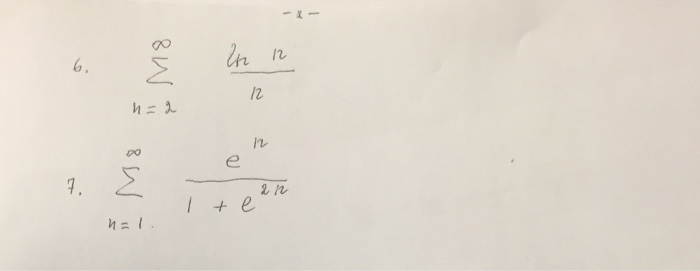 - x -
6. ∞ ∑ n = 2 ln n / n
7. ∞ ∑ n = 1. e^n / 1 + e^2n